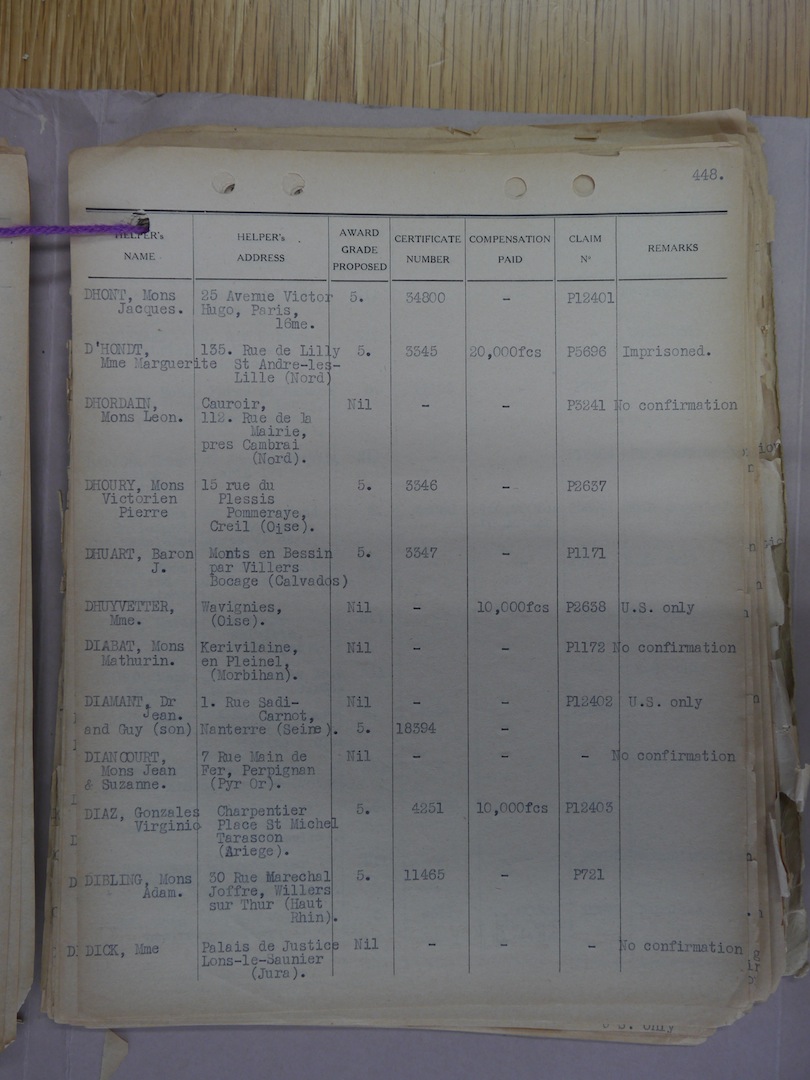 448.
HELPER's NAME | HELPER's ADDRESS | AWARD GRADE PROPOSED | CERTIFICATE NUMBER | COMPENSATION PAID | CLAIM Nº | REMARKS
DHONT, Mons 25 Avenue Victor 5. 34800 - P12401
Jacques. Hugo, Paris,
16me.
D'HONDT, 135. Rue de Lilly 5. 3345 20,000fcs P5696 Imprisoned.
Mme Marguerite St Andre-les-
Lille (Nord)
DHORDAIN, Cauroir, Nil - - P3241 No confirmation
Mons Leon. 112. Rue de la
Mairie,
pres Cambrai
(Nord).
DHOURY, Mons 15 rue du 5. 3346 - P2637
Victorien Plessis
Pierre Pommeraye,
Creil (Oise).
DHUART, Baron Monts en Bessin 5. 3347 - P1171
J. par Villers
Bocage (Calvados)
DHUYVETTER, Wavignies, Nil - 10,000fcs P2638 U.S. only
Mme. (Oise).
DIABAT, Mons Kerivilaine, Nil - - P1172 No confirmation
Mathurin. en Pleinel,
(Morbihan).
DIAMANT, Dr 1. Rue Sadi- Nil P12402 U.S. only
Jean. Carnot,
and Guy (son) Nanterre (Seine). 5. 18394 -
DIANCOURT, 7 Rue Main de Nil - - - No confirmation
Mons Jean Fer, Perpignan
& Suzanne. (Pyr Or).
DIAZ, Gonzales Charpentier 5. 4251 10,000fcs P12403
Virginio Place St Michel
Tarascon
(Ariege).
DIBLING, Mons 30 Rue Marechal 5. 11465 - P721
Adam. Joffre, Willers
sur Thur (Haut
Rhin).
DICK, Mme Palais de Justice Nil - - - No confirmation
Lons-le-Saunier
(Jura).